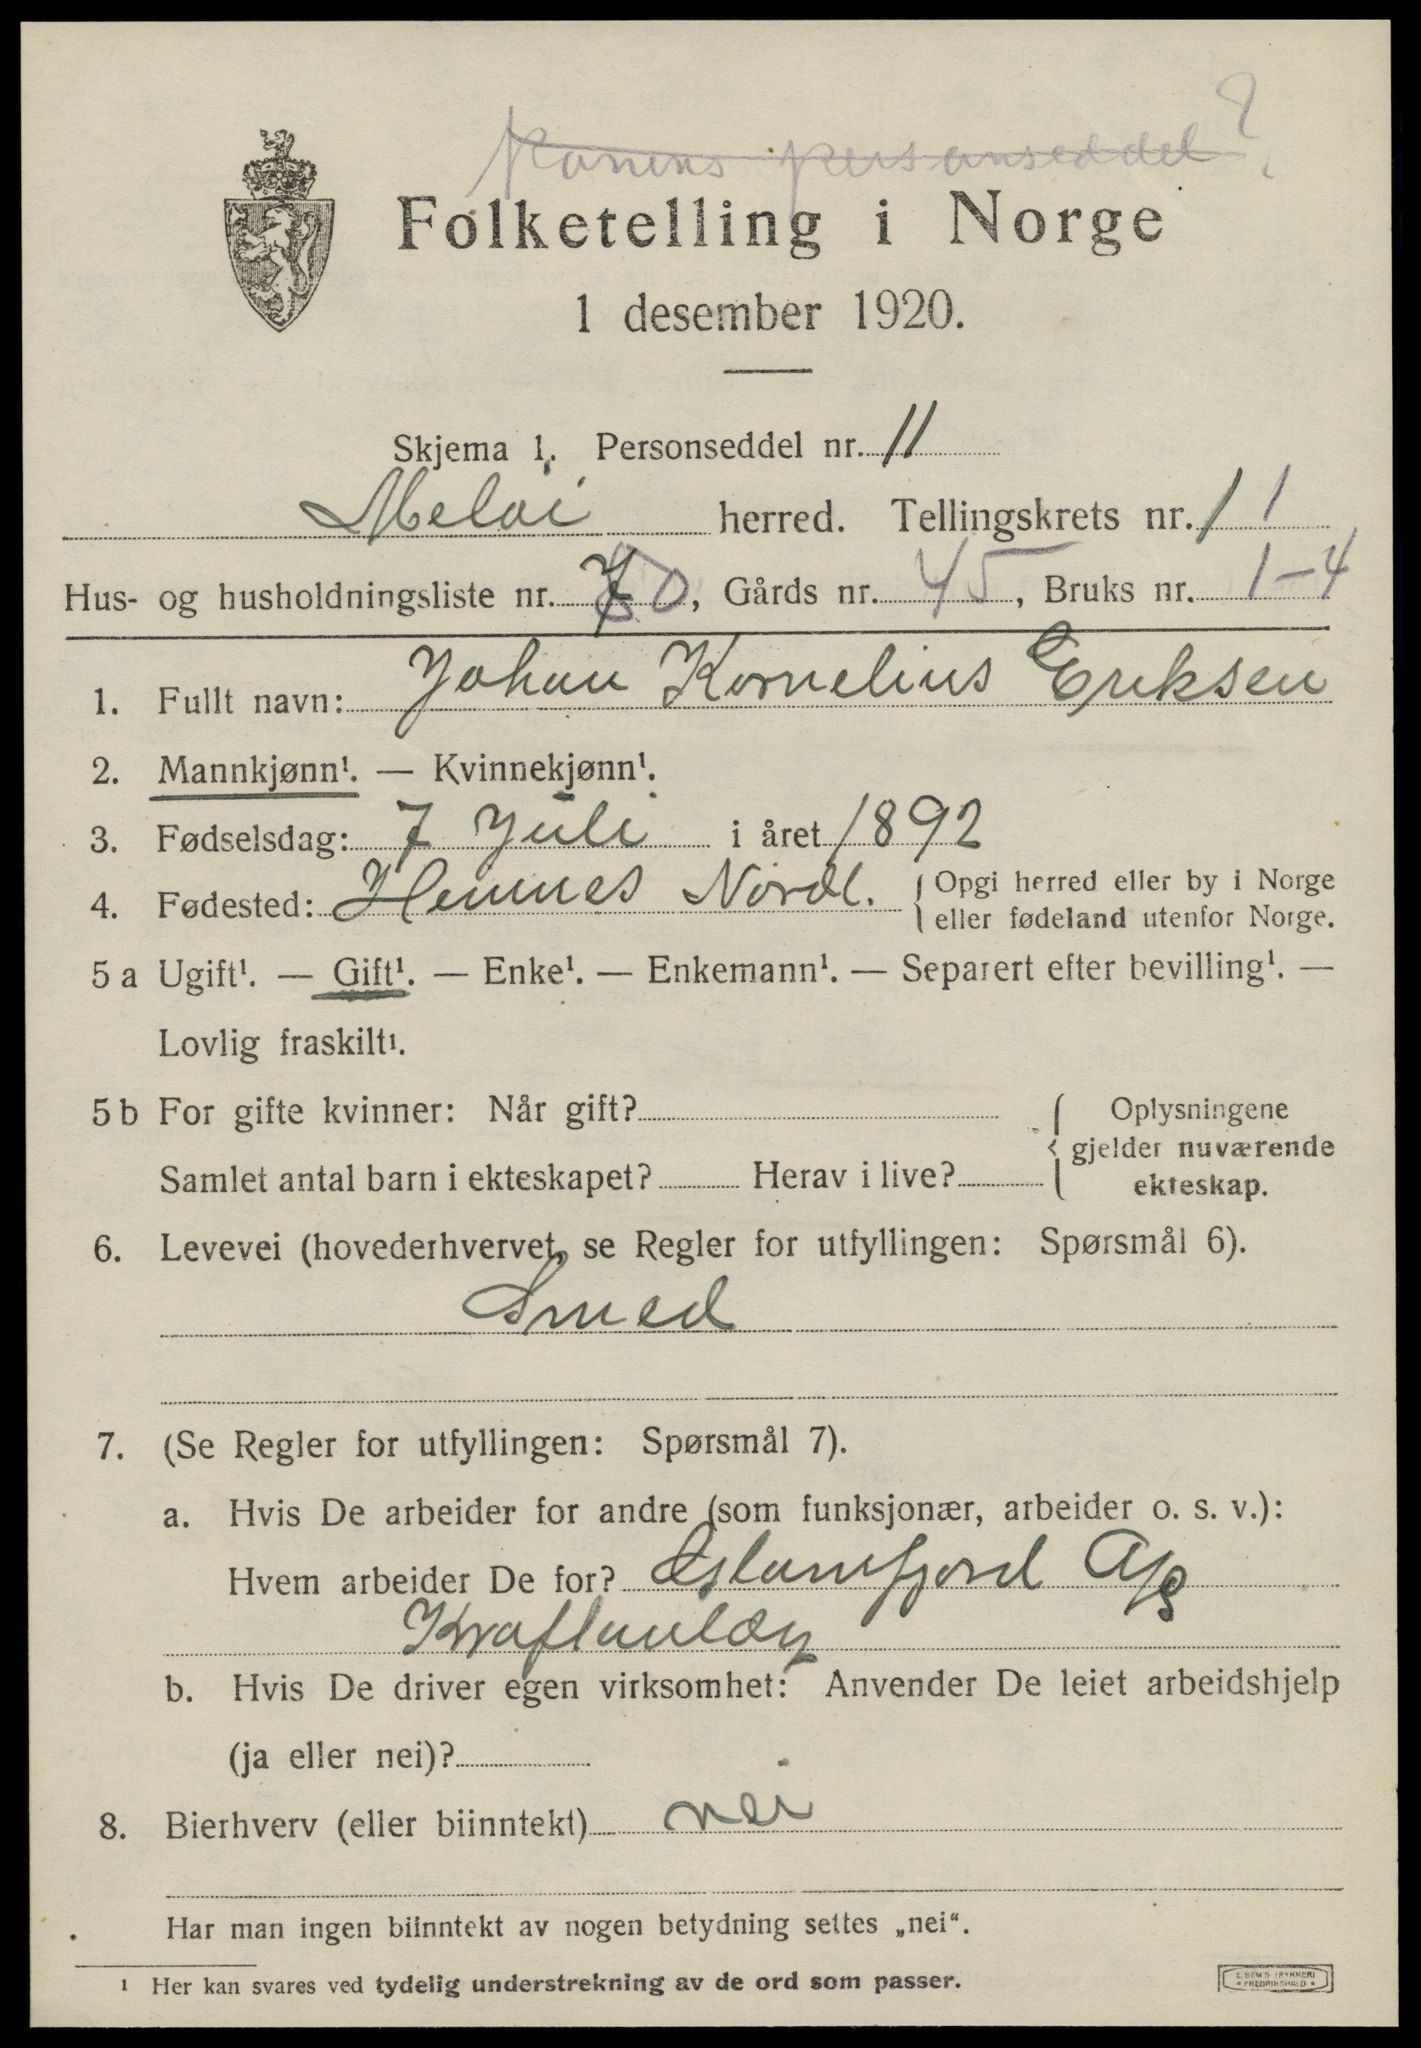 Konens personseddel ?
Folketelling i Norge
1 desember 1920.
Skjema 1. Personseddel nr. 11
Meløi herred. Tellingskrets nr. 1 1
Hus- og husholdningsliste nr. 7 80, Gårds nr. 45, Bruks nr. 1-4
1. Fullt navn: Johan Kornelius Eriksen
2. Mannkjønn¹. — Kvinnekjønn¹.
3. Fødselsdag: 7 Juli i året 1892
4. Fødested: Hemnes Nordl. { Opgi herred eller by i Norge
eller fødeland utenfor Norge.
5 a Ugift¹. — Gift¹. — Enke¹. — Enkemann¹. — Separert efter bevilling¹. —
Lovlig fraskilt¹.
5 b For gifte kvinner: Når gift?
Samlet antal barn i ekteskapet? Herav i live?
{ Oplysningene
gjelder nuværende
ekteskap.
6. Levevei (hovederhvervet, se Regler for utfyllingen: Spørsmål 6).
Smed
7. (Se Regler for utfyllingen: Spørsmål 7).
a. Hvis De arbeider for andre (som funksjonær, arbeider o. s. v.):
Hvem arbeider De for? Glomfjord A/S
Kraftanlæg
b. Hvis De driver egen virksomhet: Anvender De leiet arbeidshjelp
(ja eller nei)?
8. Bierhverv (eller biinntekt) nei
Har man ingen biinntekt av nogen betydning settes „nei“.
¹ Her kan svares ved tydelig understrekning av de ord som passer.
E. SEM'S TRYKKERI
FREDRIKSHALD